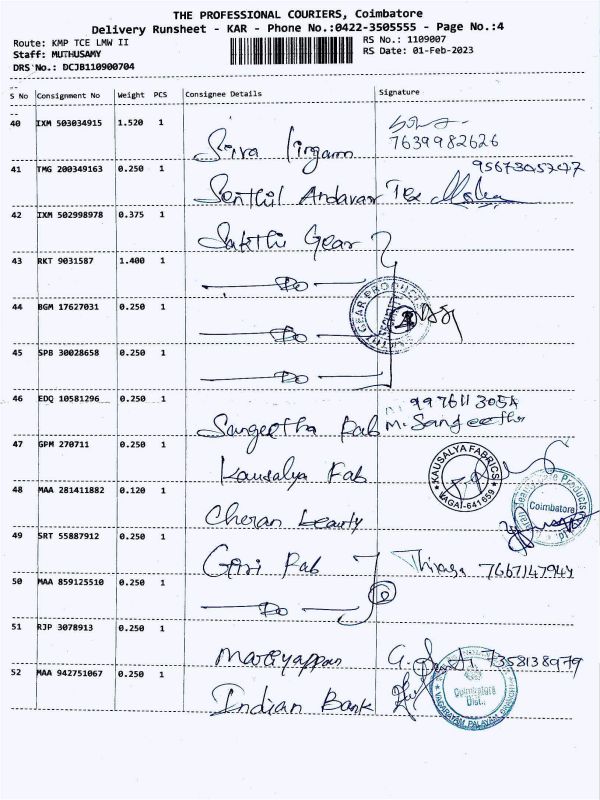 THE PROFESSIONAL COURIERS, Coimbatore
Delivery Runsheet - KAR - Phone No.:0422-3505555 - Page No.:4
Route: KMP TCE LMW II RS No.: 1109007
Staff: MUTHUSAMY RS Date: 01-Feb-2023
DRS No.: DCJB110900704
S No Consignment No Weight PCS Consignee Details Signature
40 IXM 503034915 1.520 1 Siva lingam 7639982626
41 TMG 200349163 0.250 1 Senthil Andavar Tex 9567305247
42 IXM 502998978 0.375 1 Sakthi Gear
43 RKT 9031587 1.400 1 Do
44 BGM 17627031 0.250 1 Do
GEAR PRODUCTS
45 SPB 30028658 0.250 1 Do
46 EDQ 10581296 0.250 1 Sangeetha Fab 9976113054
M. Sangeetha
47 GPM 270711 0.250 1 Kausalya Fab
KAUSALYA FABRICS
VAGAI-641659
48 MAA 281411882 0.120 1 Cheran beauty
Coimbatore
49 SRT 55887912 0.250 1 Gari Fab 7667147944
50 MAA 859125510 0.250 1 Do
51 RJP 3078913 0.250 1 Mariyappan 7358138979
52 MAA 942751067 0.250 1 Indian Bank
Coimbatore
Dist.